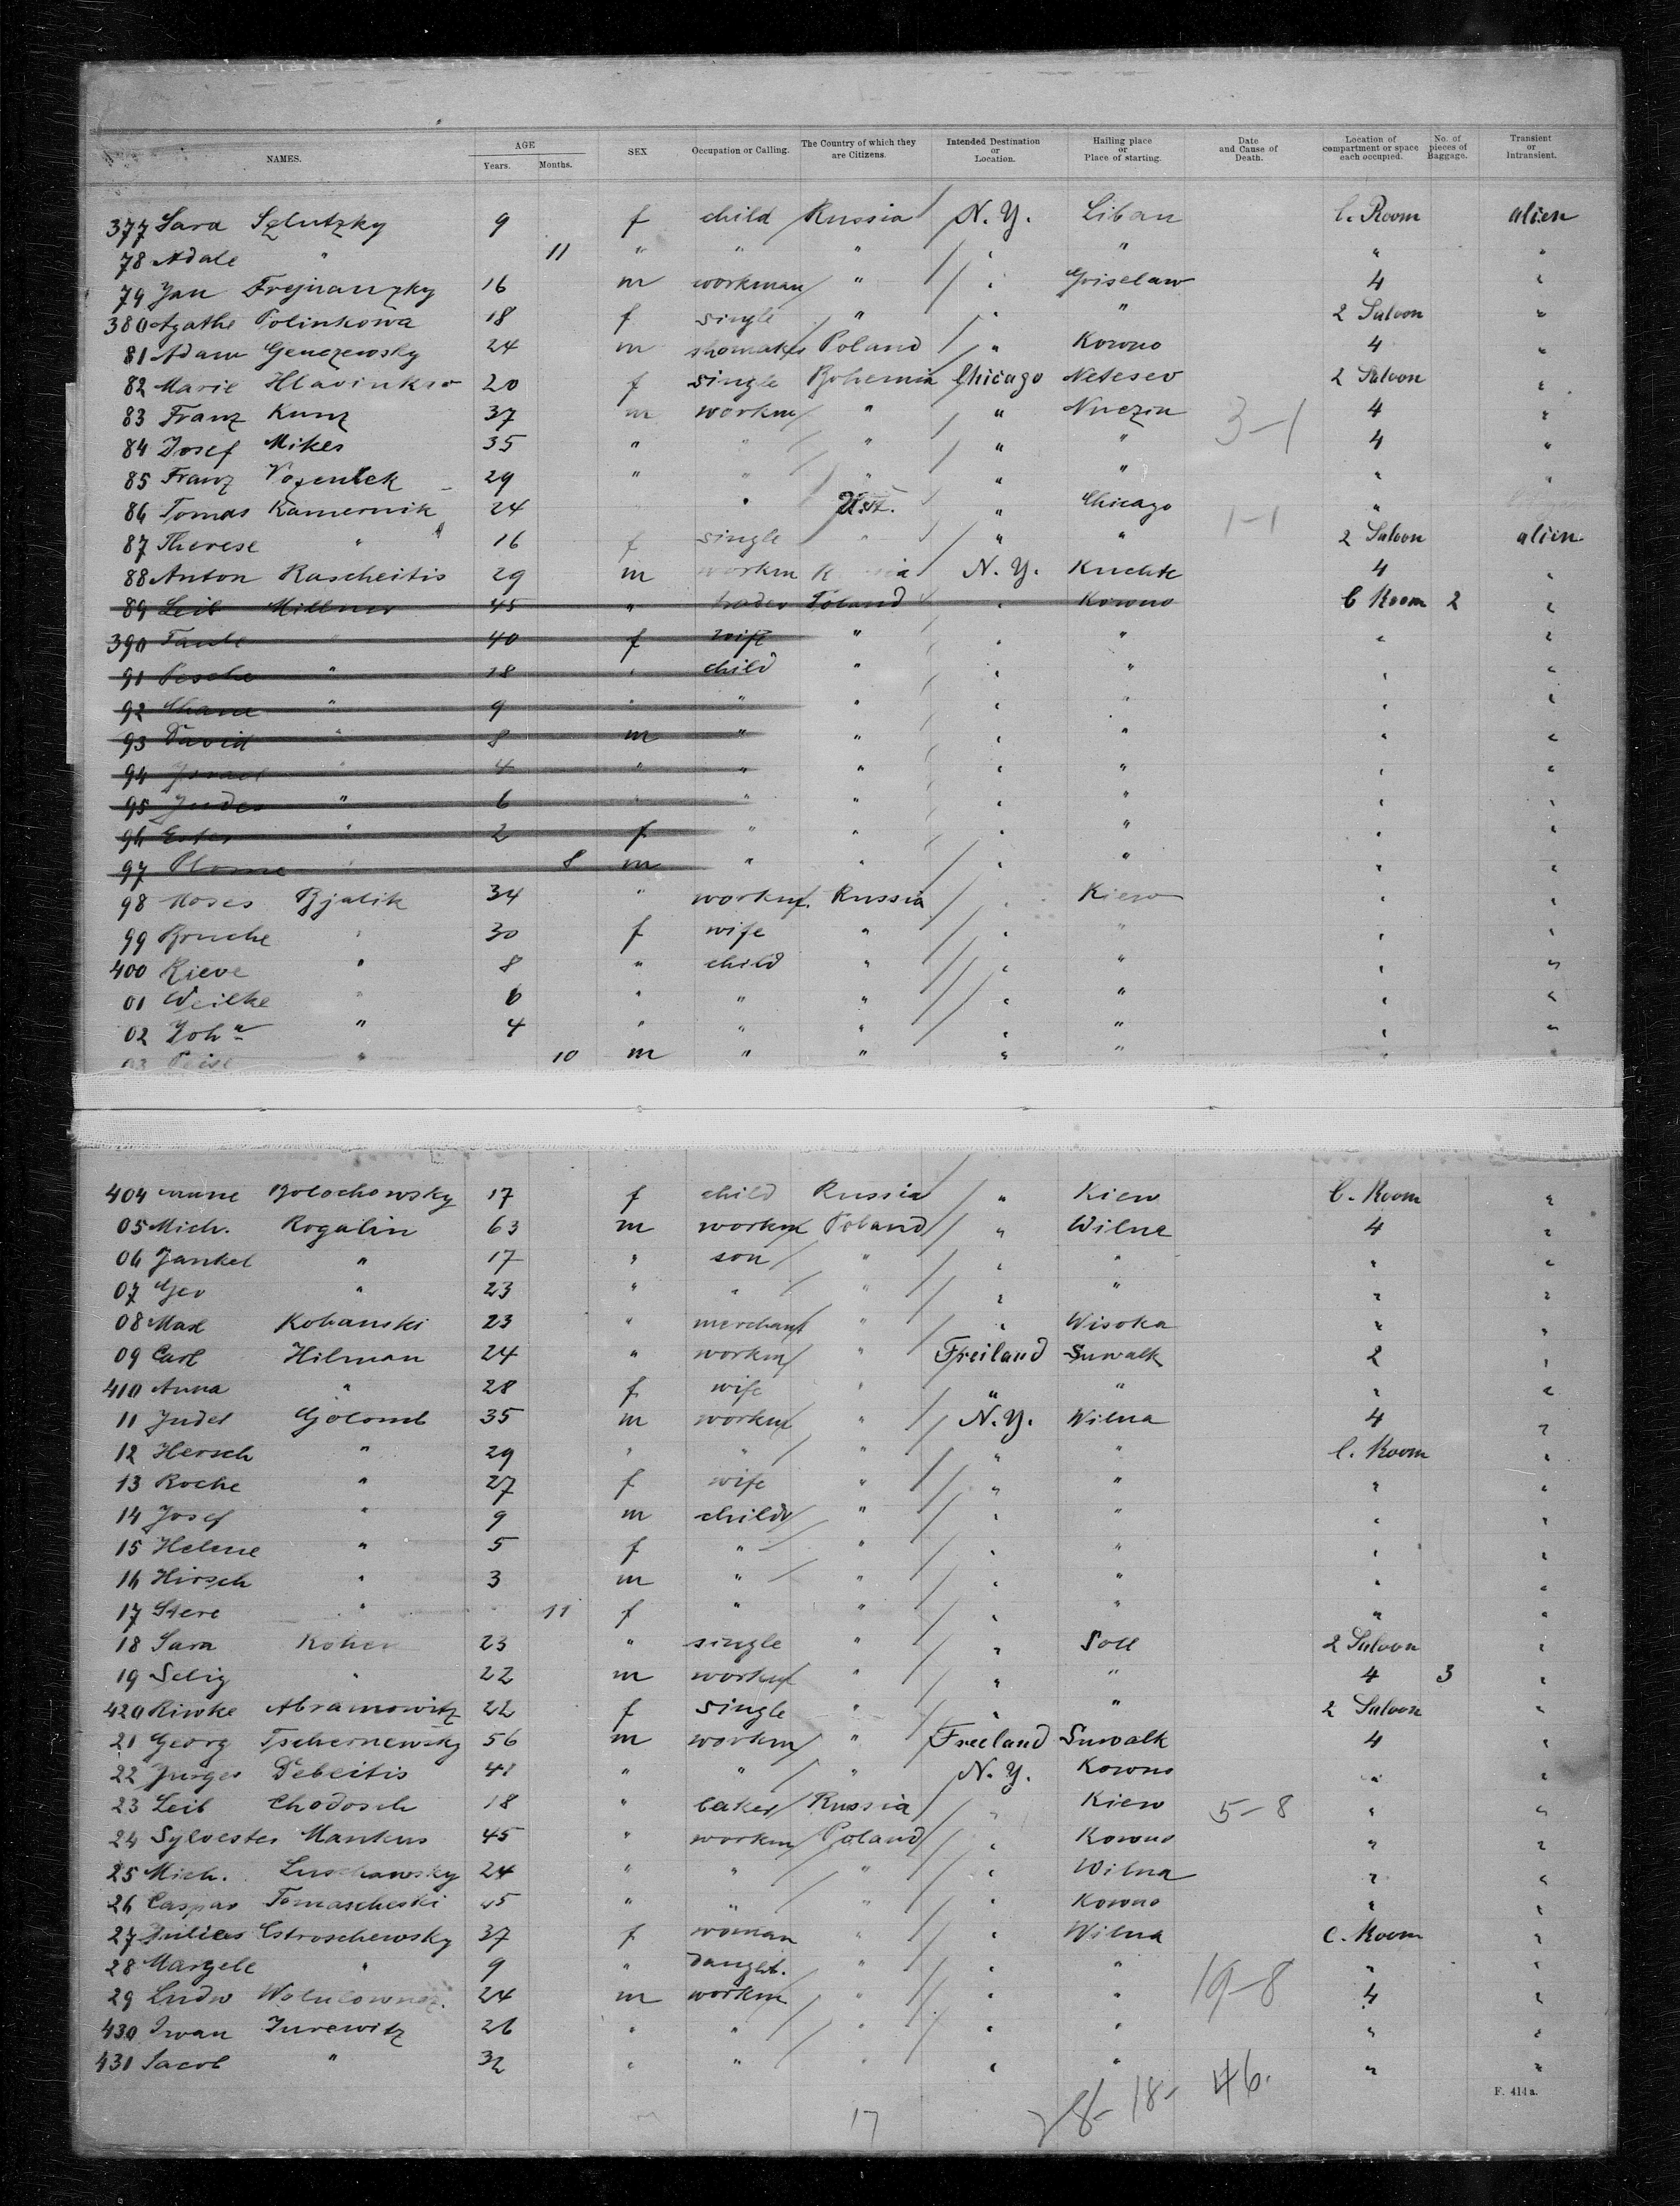 NAMES. AGE Years. Months. SEX Occupation or Calling. The Country of which they are Citizens. Intended Destination or Location. Hailing place or Place of starting. Date and Cause of Death. Location of compartment or space each occupied. No. of pieces of Baggage. Transient or Intransient.
377 Sara Sklutzky 9 f child Russia N. Y. Liban C. Room alien
78 Adale " 11 " " " " " " "
79 Jan 16 m workman " " 4 "
380 Agathe Polinkowa 18 f single " " " 2 Saloon "
81 Adam Genczewsky 24 m shomaker Poland " Kowno 4 "
82 Marie 20 f single Bohemia Chicago 2 Saloon "
83 Franz Kunz 37 m workm " " 3-1 4 "
84 Josef Mikes 35 " " " " " 4 "
85 Franz 29 " " " " " " "
86 Tomas Kamernik 24 " U. St. " Chicago 1-1 "
87 Therese " 16 f single " " " 2 Saloon alien
88 Anton Rascheitis 29 m workm N. Y. 4 "
89 Leib Millner 45 " trader Poland " Kowno C Room 2 "
390 Taube " 40 f wife " " " " "
91 Pesche " 18 " child " " " " "
92 Chane " 9 " " " " " " "
93 David " 8 m " " " " " "
94 Israel " 4 " " " " " " "
95 Judes " 6 " " " " " " "
96 Ester " 2 f " " " " " "
97 " 8 m " " " " " "
98 Moses Bjalik 34 " workm. Russia " Kiew " "
99 Bruche " 30 f wife " " " " "
400 Rieve " 8 " child " " " " "
01 Weilke " 6 " " " " " " "
02 " 4 " " " " " " "
03 " 10 m " " " " " "
404 Bolochowsky 17 f child Russia " Kiew C. Room "
05 Mich. Rogalin 63 m workm Poland " Wilna 4 "
06 Jankel " 17 " son " " " " "
07 Geo " 23 " " " " " " "
08 Max Kohanski 23 " merchant " " Wisoka " "
09 Carl Hilman 24 " workm " Freiland Suwalk 2 "
410 Anna " 28 f wife " " " " "
11 Judel Golomb 35 m workm " N. Y. Wilna 4 "
12 Hersch " 29 " " " " " C. Room "
13 Roche " 27 f wife " " " " "
14 Josef " 9 m child " " " " "
15 Helene " 5 f " " " " " "
16 Hirsch " 3 m " " " " " "
17 " 11 f " " " " " "
18 Sara Kohen 23 " single " " Soll 2 Saloon "
19 Selig " 22 m workm " " " 4 3 "
420 Riwke Abramowitz 22 f single " " " 2 Saloon "
21 Georg Tschernewsky 56 m workm " Freeland Suwalk 4 "
22 Jurges Debeitis 41 " " " N. Y. Kowno " "
23 Leib Chodosch 18 " baker Russia " Kiew 5-8 " "
24 Sylvester Mankus 45 " workm Poland " Kowno " "
25 Mich. Luschawsky 24 " " " " Wilna " "
26 Caspar Tomascheski " " " " Kowno " "
27 Julies Ostroschewsky 37 f woman " " Wilna C. Room "
28 Margele " 9 " daught. " " " " "
29 Ludw 24 m workm " " " 19-8 4 "
430 Iwan Jurewitz 26 " " " " " " "
431 Jacob " 32 " " " " " " "
17 28- 18- 46.
F. 414a.